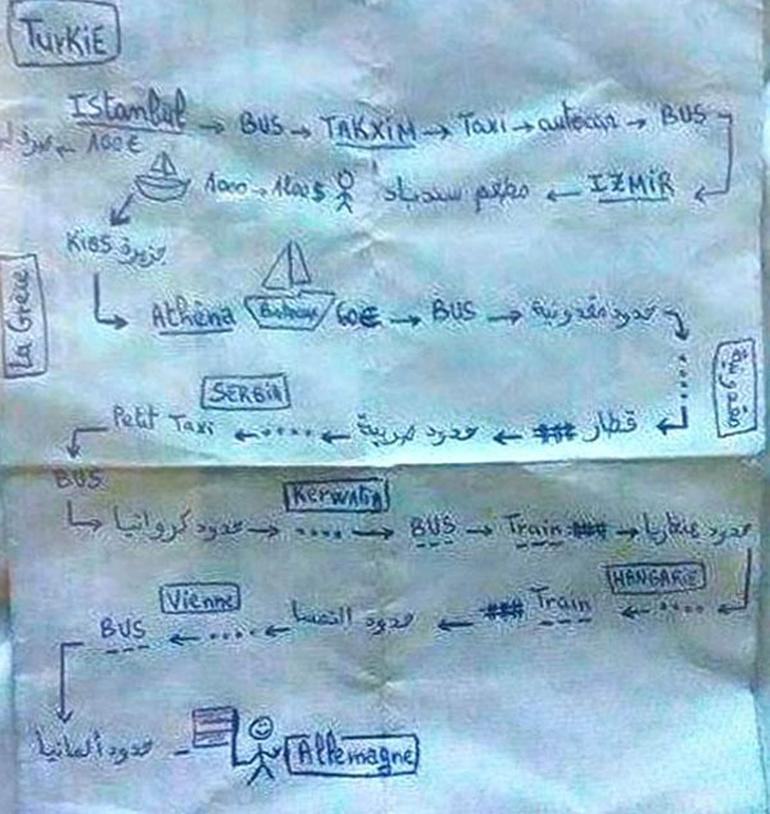 TurKiE
IStanbul → BUS → TAKXiM → Taxi → autocar → BUS
100€
IZMiR ← مطعم سندباد 1000 → 1200$
Kios جزيرة
La Grèce
Athêna 60€ → BUS → حدود مقدونية
مقدونية
SERBiA
قطار ← حدود صربية ← .... ← Petit Taxi
BUS
KerwAtia
حدود كرواتيا → .... → BUS → Train → حدود هنغاريا
HANGARiE
.... ← Train ← حدود النمسا ← .... ← BUS
Vienne
حدود ألمانيا
Allemagne